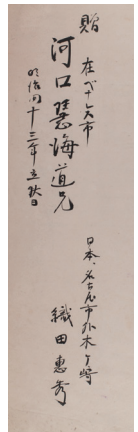 贈
在ベナレス市
河口慧海道兄
明治四十三年立秋日
日本、名古屋市外木ヶ崎
織田惠秀